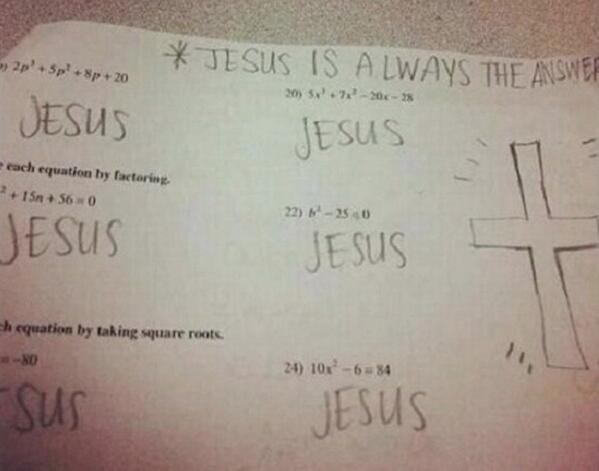 * JESUS IS ALWAYS THE ANSWER
2p³ + 5p² + 8p + 20
20) 5x³ + 7x² − 20x − 28
JESUS
JESUS
each equation by factoring.
² + 15n + 56 = 0
22) b² − 25 = 0
JESUS
JESUS
equation by taking square roots.
= −80
24) 10x² − 6 = 84
ESUS
JESUS